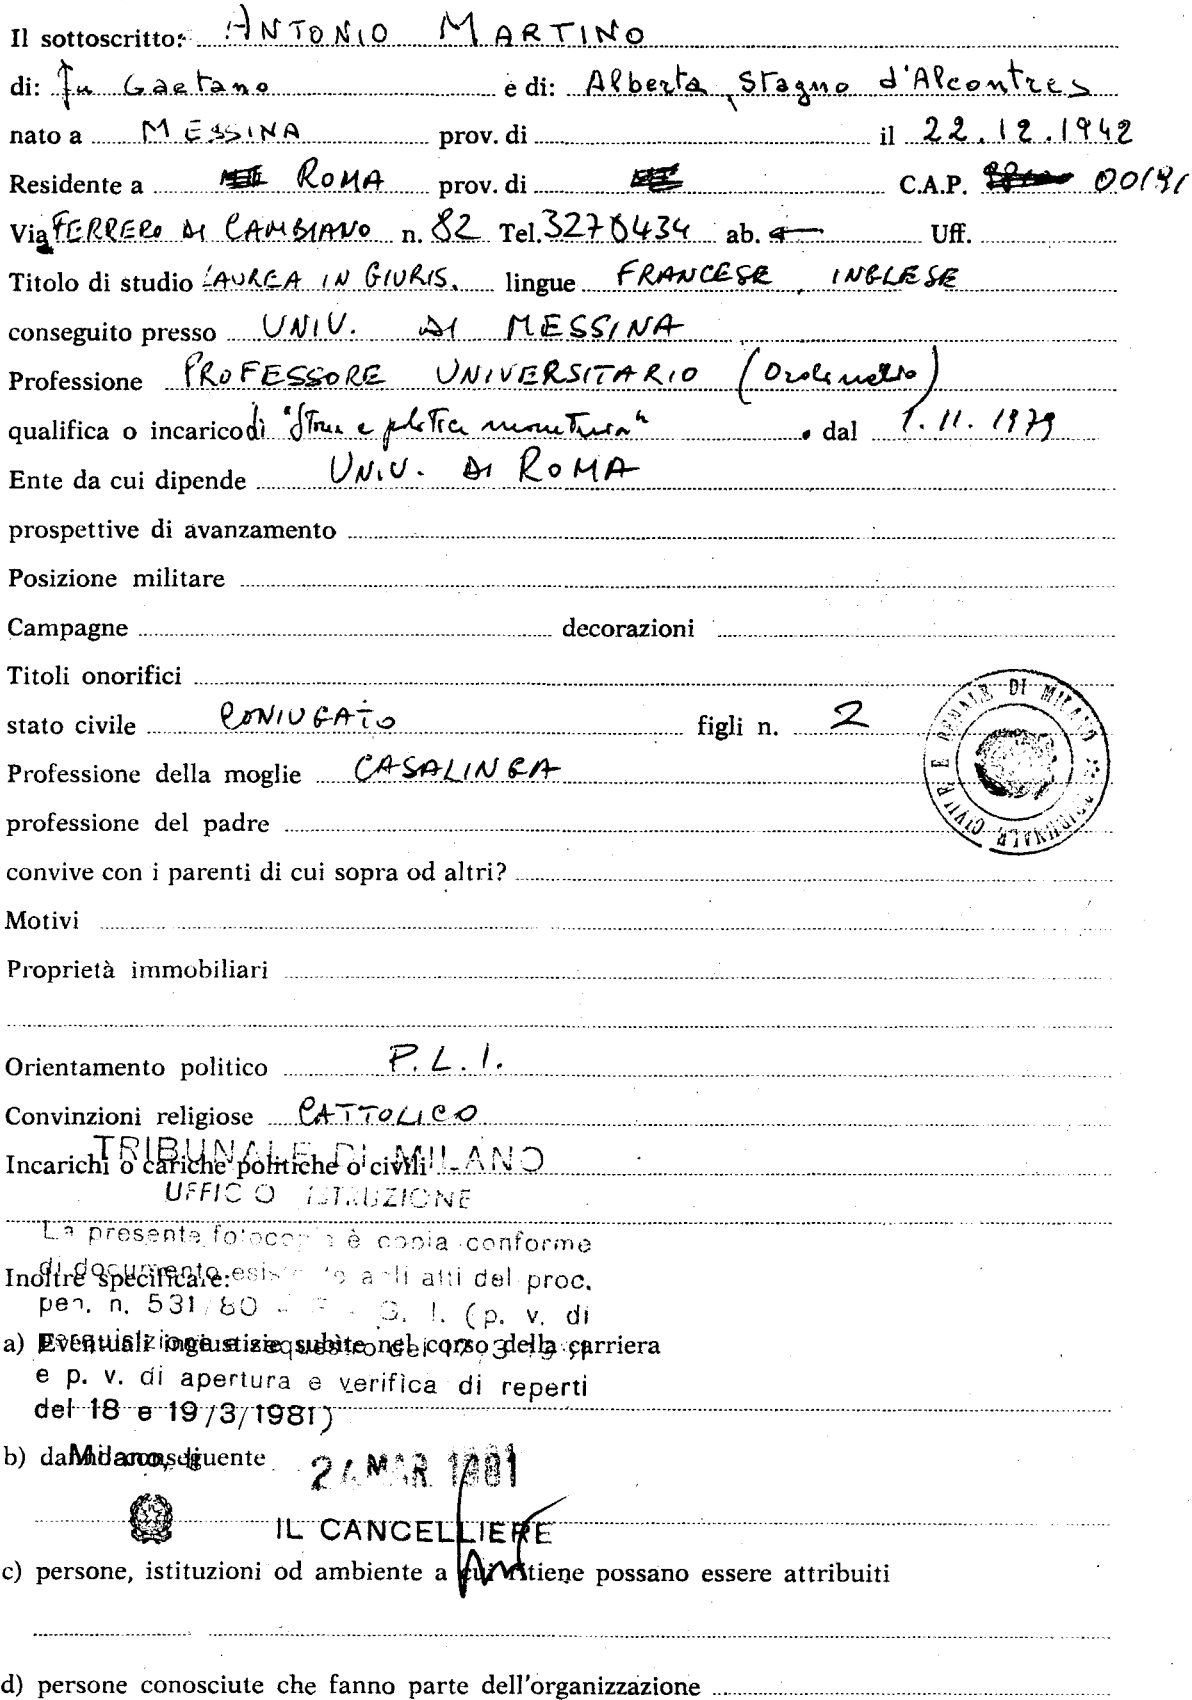 Il sottoscritto: ANTONIO MARTINO
di: fu Gaetano e di: Alberta Stagno d'Alcontres
nato a MESSINA prov. di il 22.12.1942
Residente a ROMA prov. di C.A.P. 00191
Via FERRERO DI CAMBIANO n. 82 Tel. 3276434 ab. ← Uff.
Titolo di studio LAUREA IN GIURIS. lingue FRANCESE, INGLESE
conseguito presso UNIV. DI MESSINA
Professione PROFESSORE UNIVERSITARIO (Ordinario)
qualifica o incarico di "Storia e politica monetaria" dal 1.11.1979
Ente da cui dipende UNIV. DI ROMA
prospettive di avanzamento
Posizione militare
Campagne decorazioni
Titoli onorifici
stato civile CONIUGATO figli n. 2
TRIBUNALE CIVILE E PENALE DI MILANO
Professione della moglie CASALINGA
professione del padre
convive con i parenti di cui sopra od altri?
Motivi
Proprietà immobiliari
Orientamento politico P.L.I.
Convinzioni religiose CATTOLICO
TRIBUNALE DI MILANO
Incarichi o cariche politiche o civili
UFFICIO ISTRUZIONE
La presente fotocopia è copia conforme
di documento esistente agli atti del proc.
Inoltre specificare:
pen. n. 531/80 G. I. (p. v. di
a) Eventuali ingiustizie subite nel corso della carriera
perquisizione e sequestro del
e p. v. di apertura e verifica di reperti
del 18 e 19/3/1981)
b) danno conseguente
Milano, li MAR 1981
IL CANCELLIERE
c) persone, istituzioni od ambiente a cui ritiene possano essere attribuiti
d) persone conosciute che fanno parte dell'organizzazione